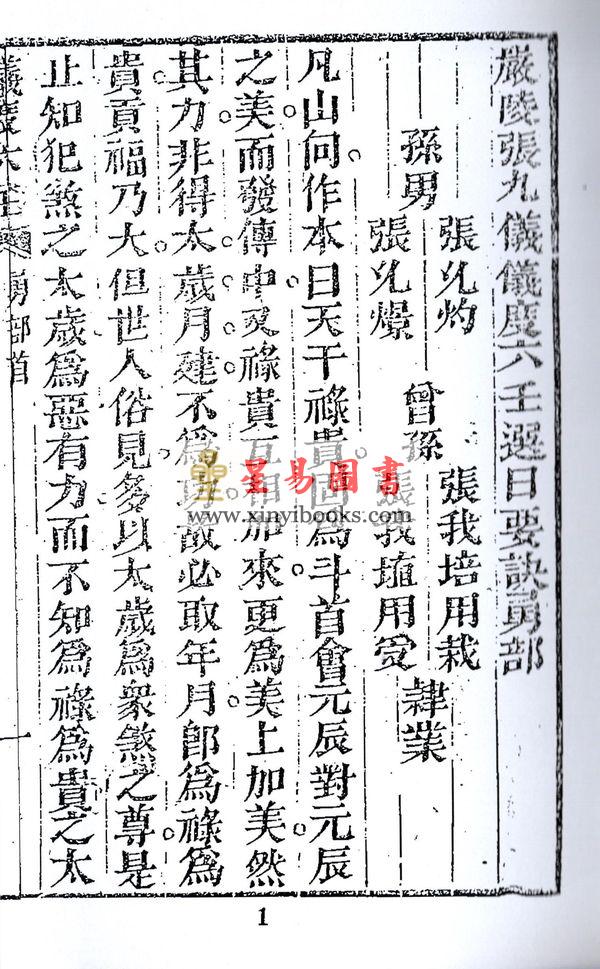 嚴陵張九儀儀度六壬選日要訣勇部
張允灼
孫男
張允燝
張我培用栽
曾孫 隸業
張我墥用愛
凡山向作本日天干祿貴固爲斗首會元辰對元辰
之美而發傳中又祿貴互相加來更爲美上加美然
其力非得太歲月建不爲功故必取年月卽爲祿爲
貴貢福乃大但世人俗見多以太歲爲衆煞之尊是
止知犯煞之太歲爲惡有力而不知爲祿爲貴之太
儀度六壬 勇部首 一
聖易圖書
www.xinyibooks.com
1